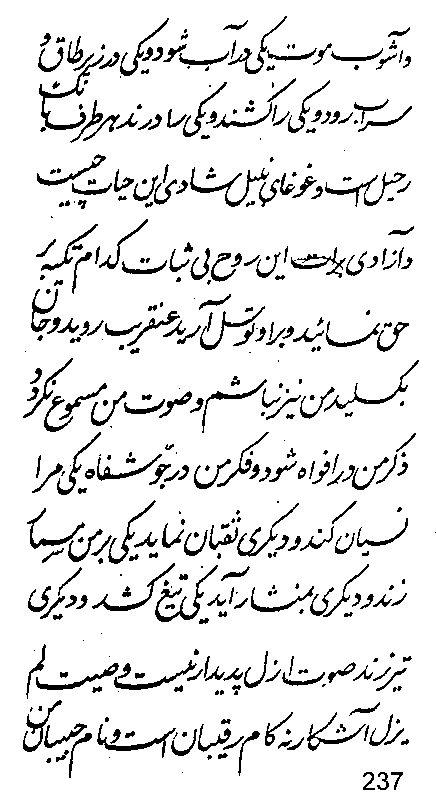 و آشوب موت یکی در آب شود و یکی در زیر طاق و
سراب رود و یکی را کشند و یکی را درند هر طرف بانگ
رحیل است و غوغای نبیل شادی این حیات چیست
و آزادی برات این روح بی ثبات کدام تکیه بر
حق نمائید و بر او توسل آرید عنقریب روید و جان
بکسلید من نیز نباشم و صوت من مسموع نکردد و
ذکر من در افواه شود و فکر من در جو شفاه یکی مرا
نسیان کند و دیگری ثقبان نماید یکی بر من
زند و دیگری بمنشار آید یکی تیغ کشد و دیگری
تیر زند صوت ازل پدیدار نیست وصیت لم
یزل آشکار نه کام رقیبان است و نام حبیبان
237